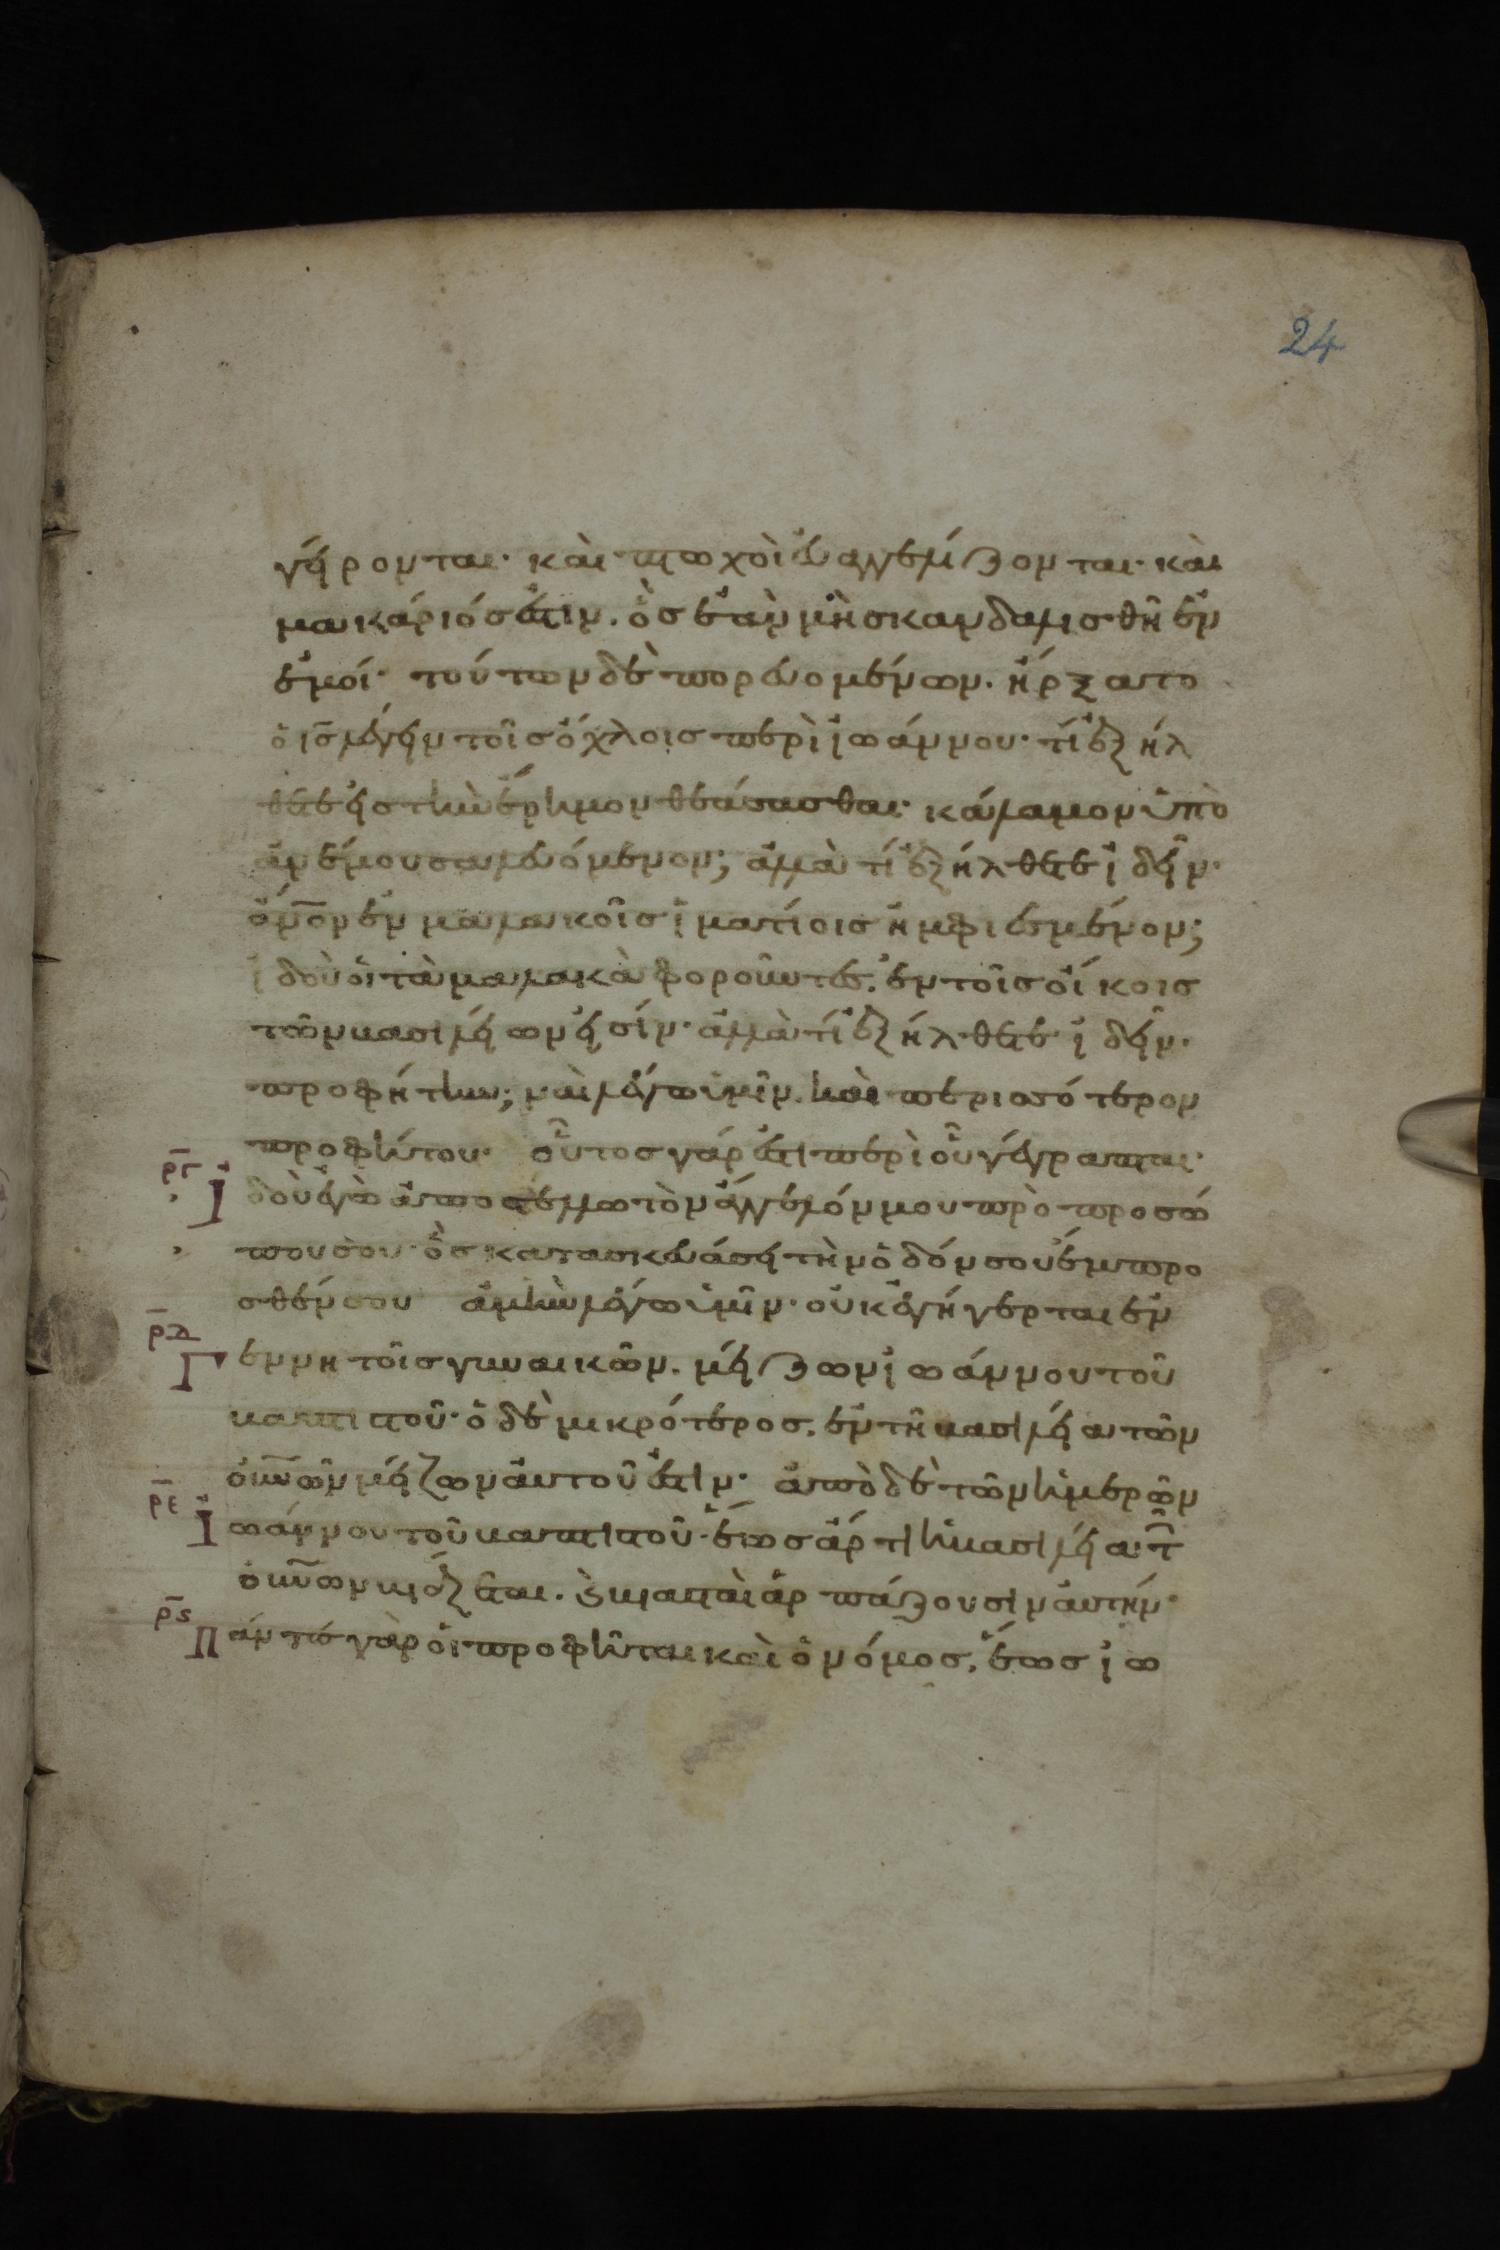 24
γείρονται· καὶ πτωχοὶ εὐαγγελίζονται· καὶ
μακάριός ἐστιν. ὃς ἐὰν μὴ σκανδαλισθῆ ἐν
ἐμοί· τούτων δὲ πορευομένων. ἤρξατο
ὁ ις̅ λέγειν τοῖς ὄχλοις περὶ ἰωάννου· τί ἐξήλ
θετε εἰς τὴν ἔρημον θεάσασθαι· κάλαμον ὑπὸ
ἀνέμου σαλευόμενον; ἀλλὰ τί ἐξήλθετε ἰδεῖν·
ἄνο̅ν ἐν μαλακοῖς ἱματίοις ἠμφιεσμένον;
ἰδοὺ οἱ τὰ μαλακὰ φοροῦντες. ἐν τοῖς οἴκοις
τῶν βασιλείων εἰσίν· ἀλλὰ τί ἐξήλθετε ἰδεῖν·
προφήτην; ναὶ λέγω ὑμῖν. καὶ περισσότερον
προφήτου· οὗτος γάρ ἐστι περὶ οὗ γέγραπται·
ρ̅γ̅ Ἰδοὺ ἐγὼ ἀποστέλλω τὸν ἄγγελόν μου πρὸ προσώ
που σου· ὃς κατασκευάσει τὴν ὁδόν σου ἔμπρο
σθέν σου ἀμὴν λέγω ὑμῖν· οὐκ ἐγήγερται ἐν
ρ̅δ̅ Γεννητοῖς γυναικῶν. μείζων ἰωάννου τοῦ
βαπτιστοῦ· ὁ δὲ μικρότερος. ἐν τῆ βασιλεία τῶν
οὐν̅ῶν μείζων αὐτοῦ ἐστιν· ἀπὸ δὲ τῶν ἡμερῶν
ρ̅ε̅ Ἰωάννου τοῦ βαπτιστοῦ· ἕως ἄρτι ἡ βασιλεία τ̅
οὐν̅ων βιάζεται. καὶ βιασταὶ ἁρπάζουσιν αὐτήν·
ρ̅ς̅ Πάντες γὰρ οἱ προφῆται καὶ ὁ νόμος. ἕως ἰω